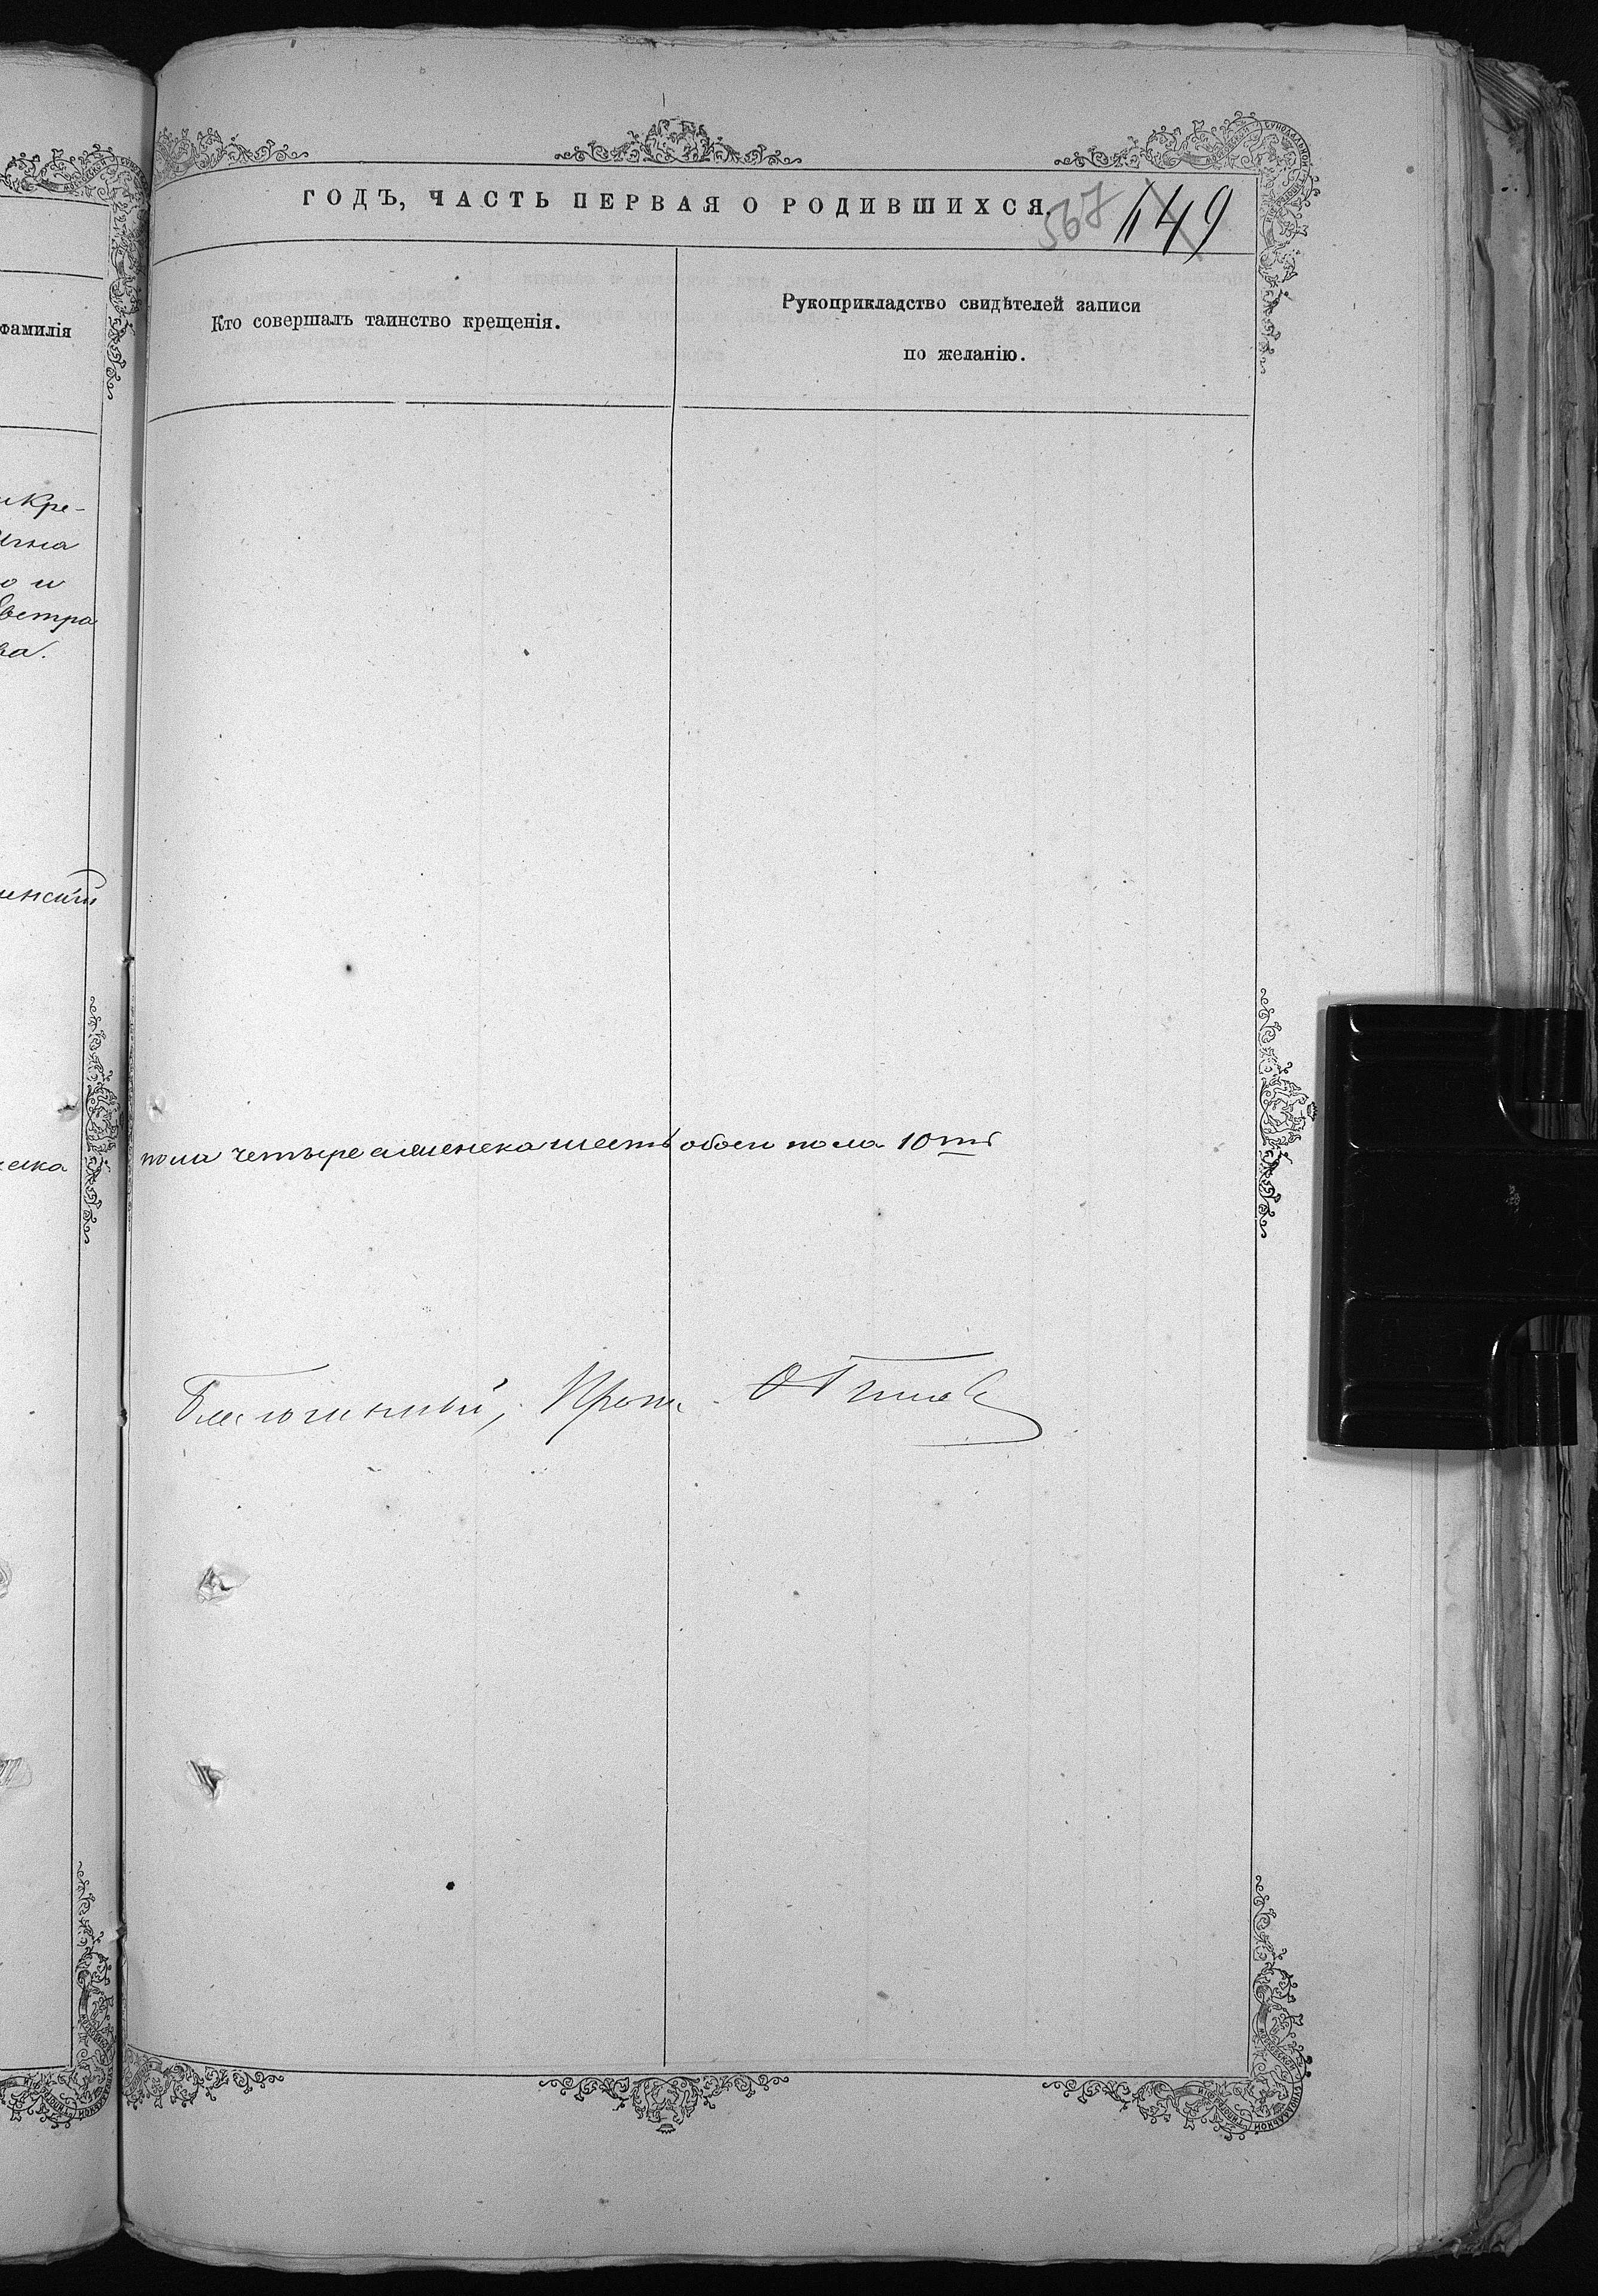 ГОДЪ, ЧАСТЬ ПЕРВАЯ О РОДИВШИХСЯ.
567 149
фамилія
Кто совершалъ таинство крещенія.
Рукоприкладство свидѣтелей записи
по желанію.
Кре-
о и
ва.
пола четыре а женска шесть обоего пола 10ть
Благочинный, Прот.